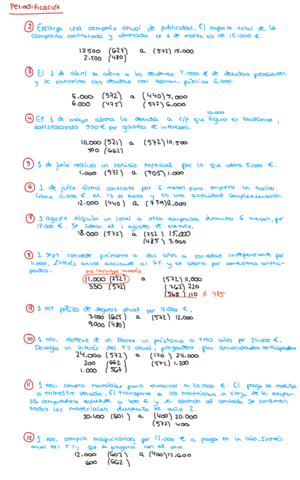 PERIODIFICACIÓN
② Encarga una campaña anual de publicidad. El importe total de la
campaña contratada y abonada a 1 de marzo es de 15.000 €.
12.500 (627) a (572) 15.000
2.500 (480)
③ El 1 de abril se abona a los deudores 5.000 € de deudas pendientes
y se cancelan las deudas con admon. pública 6.000.
5.000 (572) a (440) 5.000
6.000 (475) (572) 6.000
10.000
④ El 1 mayo abona la deuda a c/p que figura en balance,
satisfaciendo 500 € por gastos e intereses.
10.000 (521) a (572) 10.500
500 (662)
⑤ 1 de junio realiza un servicio especial por lo que cobra 5.000 €.
1.000 (572) a (705) 1.000
⑥ 1 de julio firma contrato por 6 meses para impartir un taller.
12.000 (440) a (759) 12.000
1 agosto alquila un local a otra empresa durante 6 meses, por
18.000 €. Se cobra el 1 agosto
18.000 (572) a (752) 15.000
(485) 3.000
1 sept. concede préstamo a dos años a sociedad independiente por
11.000. Interés anual
no incluye interés
11.000 (252) a (572) 11.000
330 (572) (762) 220
(568) 110 ≠ 485
⑨ 1 oct. póliza de seguros anual por 12.000 €
3.000 (625) a (572) 12.000
9.000 (480)
⑩ 1 nov. obtiene de un banco un préstamo a tres años por 24.000 €.
Devenga un interés del 5% anual, pagadero por anualidades anticipadas
24.000 (572) a (170) 24.000
200 (662) (572) 1.200
1.000 (567)
⑪ 1 nov. compra materiales para
a trimestre vencido. El transporte de los materiales a cargo de la empre-
sa compradora asciende a 400 € y se abonan al contado. Se consumen
todos los materiales durante el año 2.
20.400 (601) a (400) 20.000
(572) 400
⑫ 1 nov. compra maquinarias por 12.000 € a pagar en un año. Interés
anual del 5% y que se pagará con el otro.
12.000 (602) a (400) 12.600
600 (662)